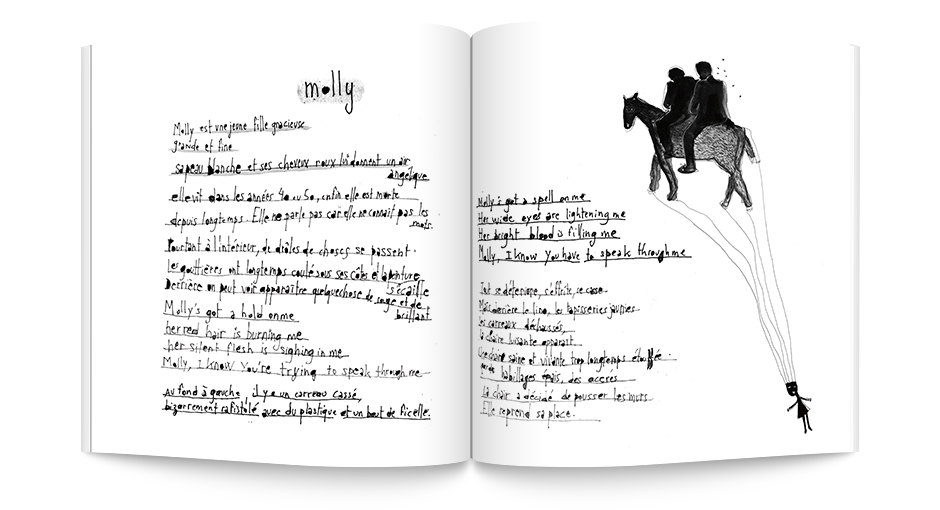 molly
Molly est une jeune fille gracieuse
grande et fine
sa peau blanche et ses cheveux roux lui donnent un air
angélique
elle vit dans les années 40 ou 50, enfin elle est morte
depuis longtemps. Elle ne parle pas car elle ne connaît pas les
mots.
Pourtant à l'intérieur, de drôles de choses se passent.
les gouttières ont longtemps coulé sous ses côtes et la peinture
s'écaille
Derrière on peut voir apparaître quelque chose de rouge et de
brillant
Molly's got a hold on me
her red hair is burning me
her silent flesh is sighing in me
Molly, I know you're trying to speak through me
Au fond à gauche, il y a un carreau cassé,
bizarrement rafistolé avec du plastique et un bout de ficelle.
Molly's got a spell on me
Her wide eyes are lightening me
Her bright blood is filling me
Molly, I know you have to speak through me
Tout se détériore, s'effrite, se casse
Mais derrière le lino, les tapisseries jaunies
les carreaux déchaussés,
la chaire luisante apparait.
Une chaire saine et vivante trop longtemps étouffée
habillages épais, des accrés
la chair a décidé de pousser les murs
Elle reprend sa place.